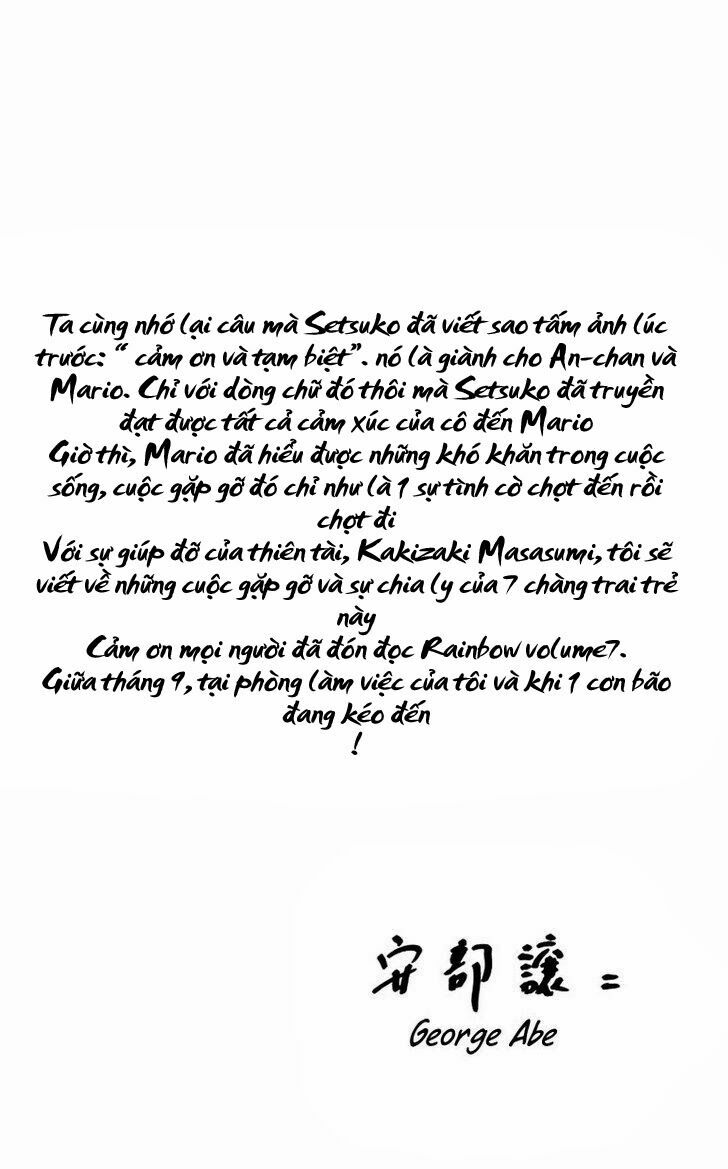 Ta cùng nhớ lại câu mà Setsuko đã viết sao tấm ảnh lúc
trước: “ cảm ơn và tạm biệt”. nó là giành cho An-chan và
Mario. Chỉ với dòng chữ đó thôi mà Setsuko đã truyền
đạt được tất cả cảm xúc của cô đến Mario
Giờ thì, Mario đã hiểu được những khó khăn trong cuộc
sống, cuộc gặp gỡ đó chỉ như là 1 sự tình cờ chợt đến rồi
chợt đi
Với sự giúp đỡ của thiên tài, Kakizaki Masasumi, tôi sẽ
viết về những cuộc gặp gỡ và sự chia ly của 7 chàng trai trẻ
này
Cảm ơn mọi người đã đón đọc Rainbow volume7.
Giữa tháng 9, tại phòng làm việc của tôi và khi 1 cơn bão
đang kéo đến
!
安部譲二
George Abe